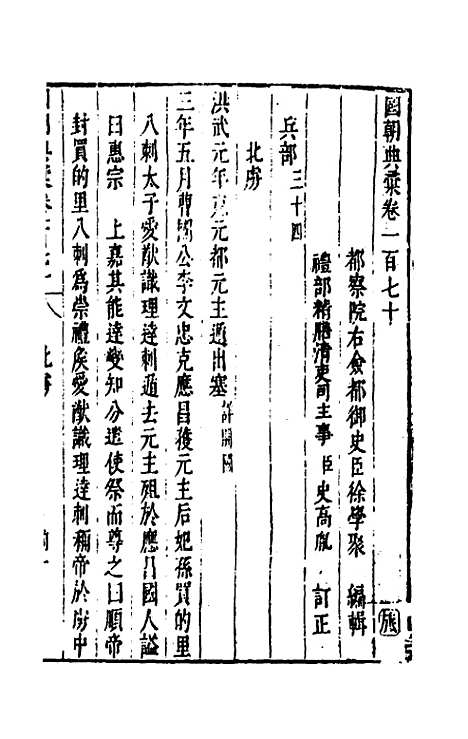 國朝典彙卷一百七十
都察院右僉都御史臣徐學聚 編輯
禮部精膳清吏司主事臣史高胤 訂正
兵部三十四
北虜
洪武元年克元都元主遁出塞詳開國
三年五月曹國公李文忠克應昌獲元主后妃孫買的里
八剌太子愛猷識理達剌遁去元主殂於應昌國人謚
曰惠宗 上嘉其能達變知分遣使祭而尊之曰順帝
封買的里八剌為崇禮侯愛猷識理達剌稱帝於虜中